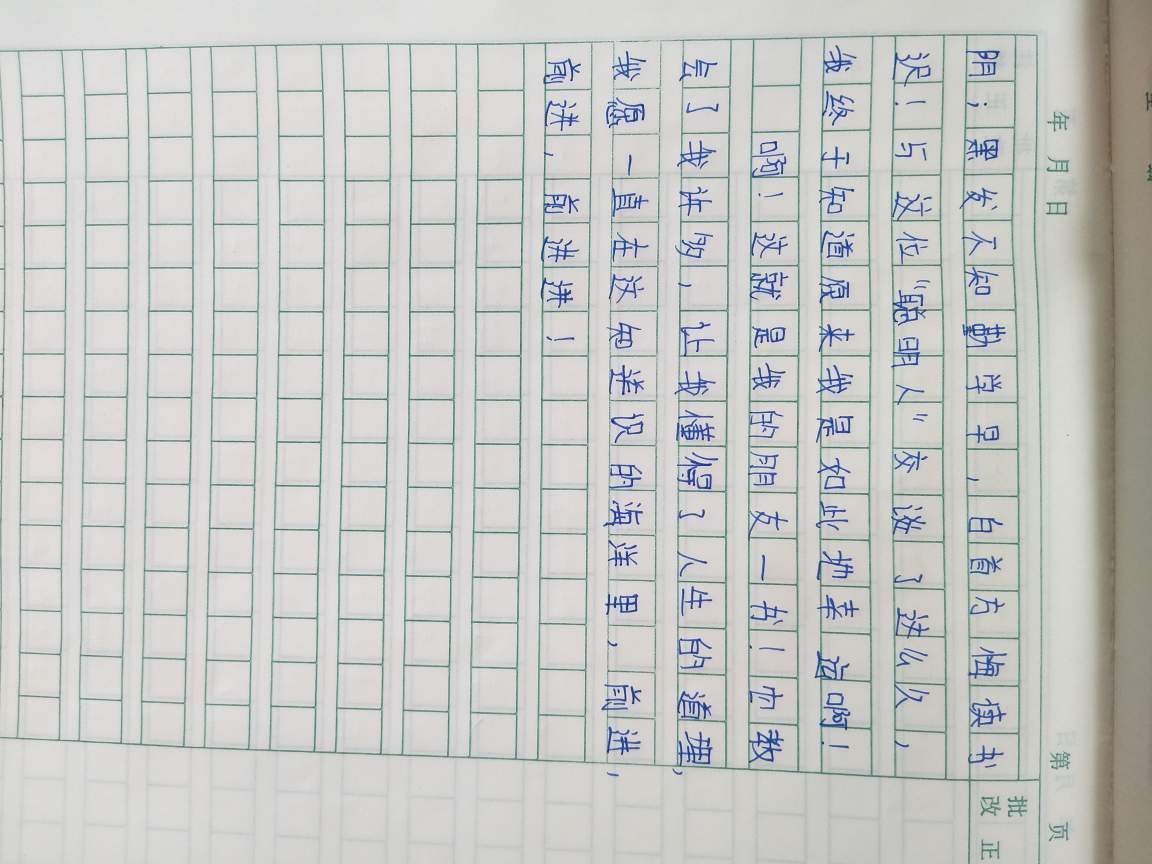 年 月 日 第 页
批改 正
阴；黑发不知勤学早，白首方悔读书
迟！与这位“聪明人”交流了这么久，
我终于知道原来我是如此地幸运啊！
啊！这就是我的朋友一书！也教
会了我许多，让我懂得了人生的道理，
我愿一直在这知识的海洋里，前进，
前进，前进进！